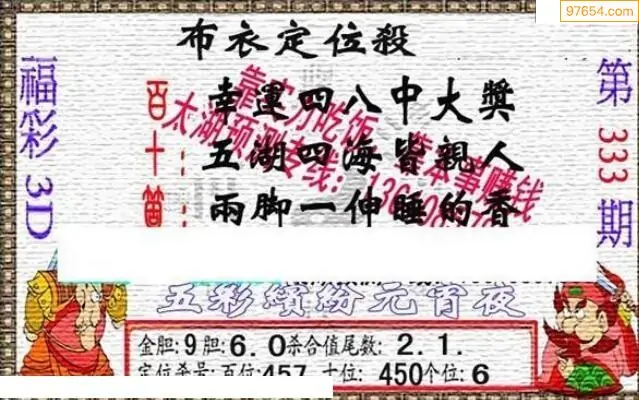 97654.com
布衣定位殺
福彩3D
第333期
百十箇
幸運四八中大獎
五湖四海皆親人
兩脚一伸睡的香
靠实力吃饭 靠本事赚钱
太湖预测专线:
五彩缤纷元宵夜
金胆:9胆:6.0杀合值尾数:2.1.
定位杀号:百位:457 十位:450个位:6